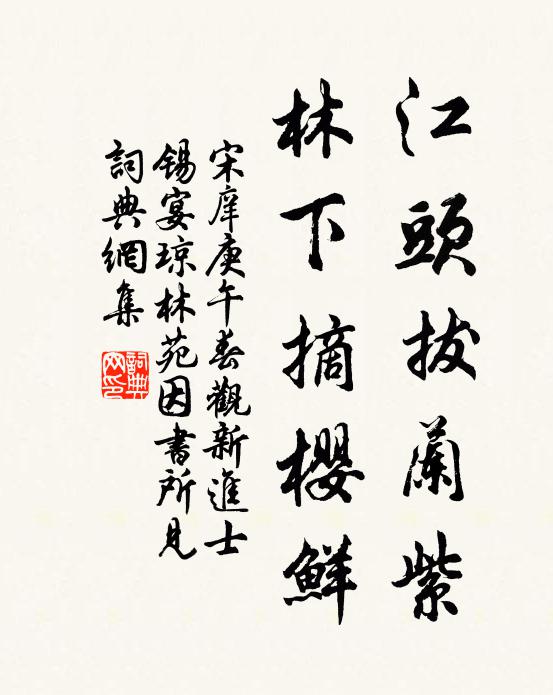 江頭拔蘭紫
林下摘櫻鮮
宋庠庚午春觀新進士
錫宴瓊林苑因書所見
詞典網集
詞典网印